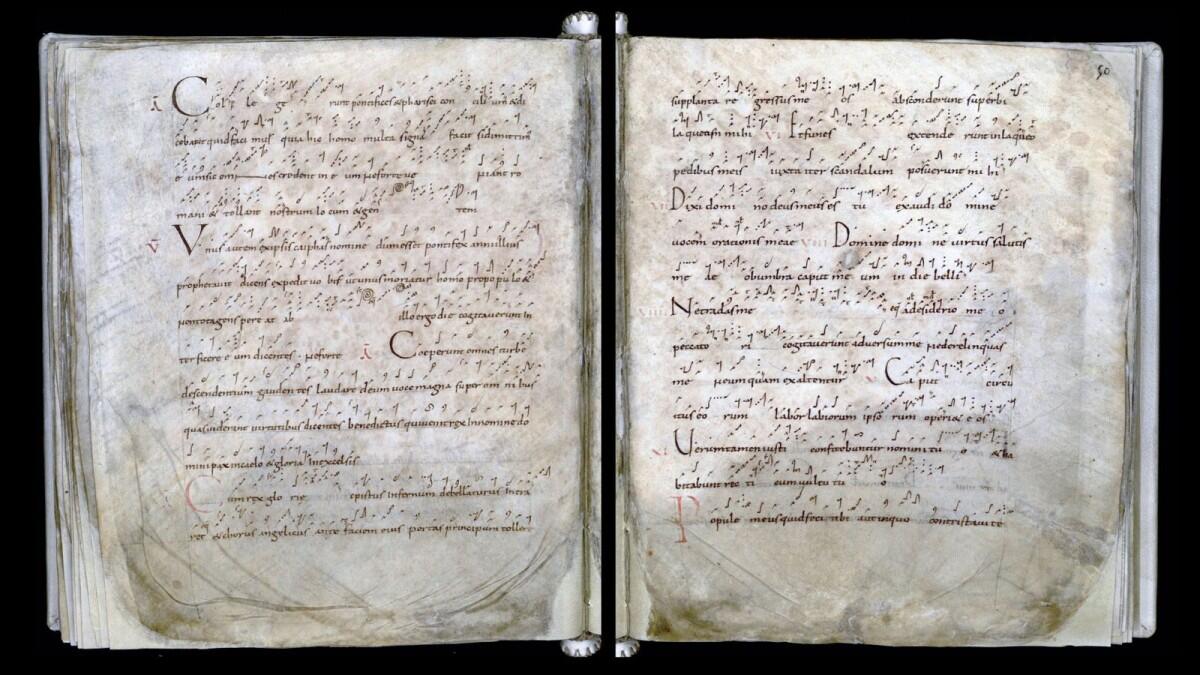 A Colle ge runt pontifices & pharisei con cili um & di
cebant quid faci mus quia hic homo multa signa facit si dimittim
e um sic om nes credent in e um ne forte ve niant ro
mani & tollant nostrum lo cum & gen tem
V Vnus autem ex ipsis caiphas nomine dum esset pontifex anni illius
prophetavit dicens expedit vo bis ut unus moriatur homo pro po pulo &
non tota gens pere at ab illo ergo die cogitaverunt in
terficere e um dicentes ne forte A Coeperunt omnes turbe
descendentium gaudentes laudare deum voce magna super om ni bus
quas viderant virtutibus dicentes benedictus qui venit rex in nomine do
mini pax in caelo & gloria in excelsis
Cum rex glo rie xpistus infernum debellaturus intra
ret & chorus angelicus ante faciem eius portas principum tollere
50
supplanta re gressus me os absconderunt superbi
laqueum mihi VI Et funes extende runt in laqueo
pedibus meis iuxta iter scandalum posuerunt mi hi
VII Dixi domi no deus meus es tu exaudi dne
vocem orationis meae VIII Domine domi ne virtus salutis
me ae obumbra caput me um in die belli
VIIII Ne tradas me a desiderio me o
peccato ri cogitaverunt adversum me ne derelinquas
me ne umquam exaltentur X Ca put circu
itus eo rum labor labiorum ipso rum operi& e os
XI Veruntamen iusti confitebuntur nomini tu o & ha
bitabunt rec ti cum vultu tu o
Popule meus quid feci tibi aut in quo contristavi te